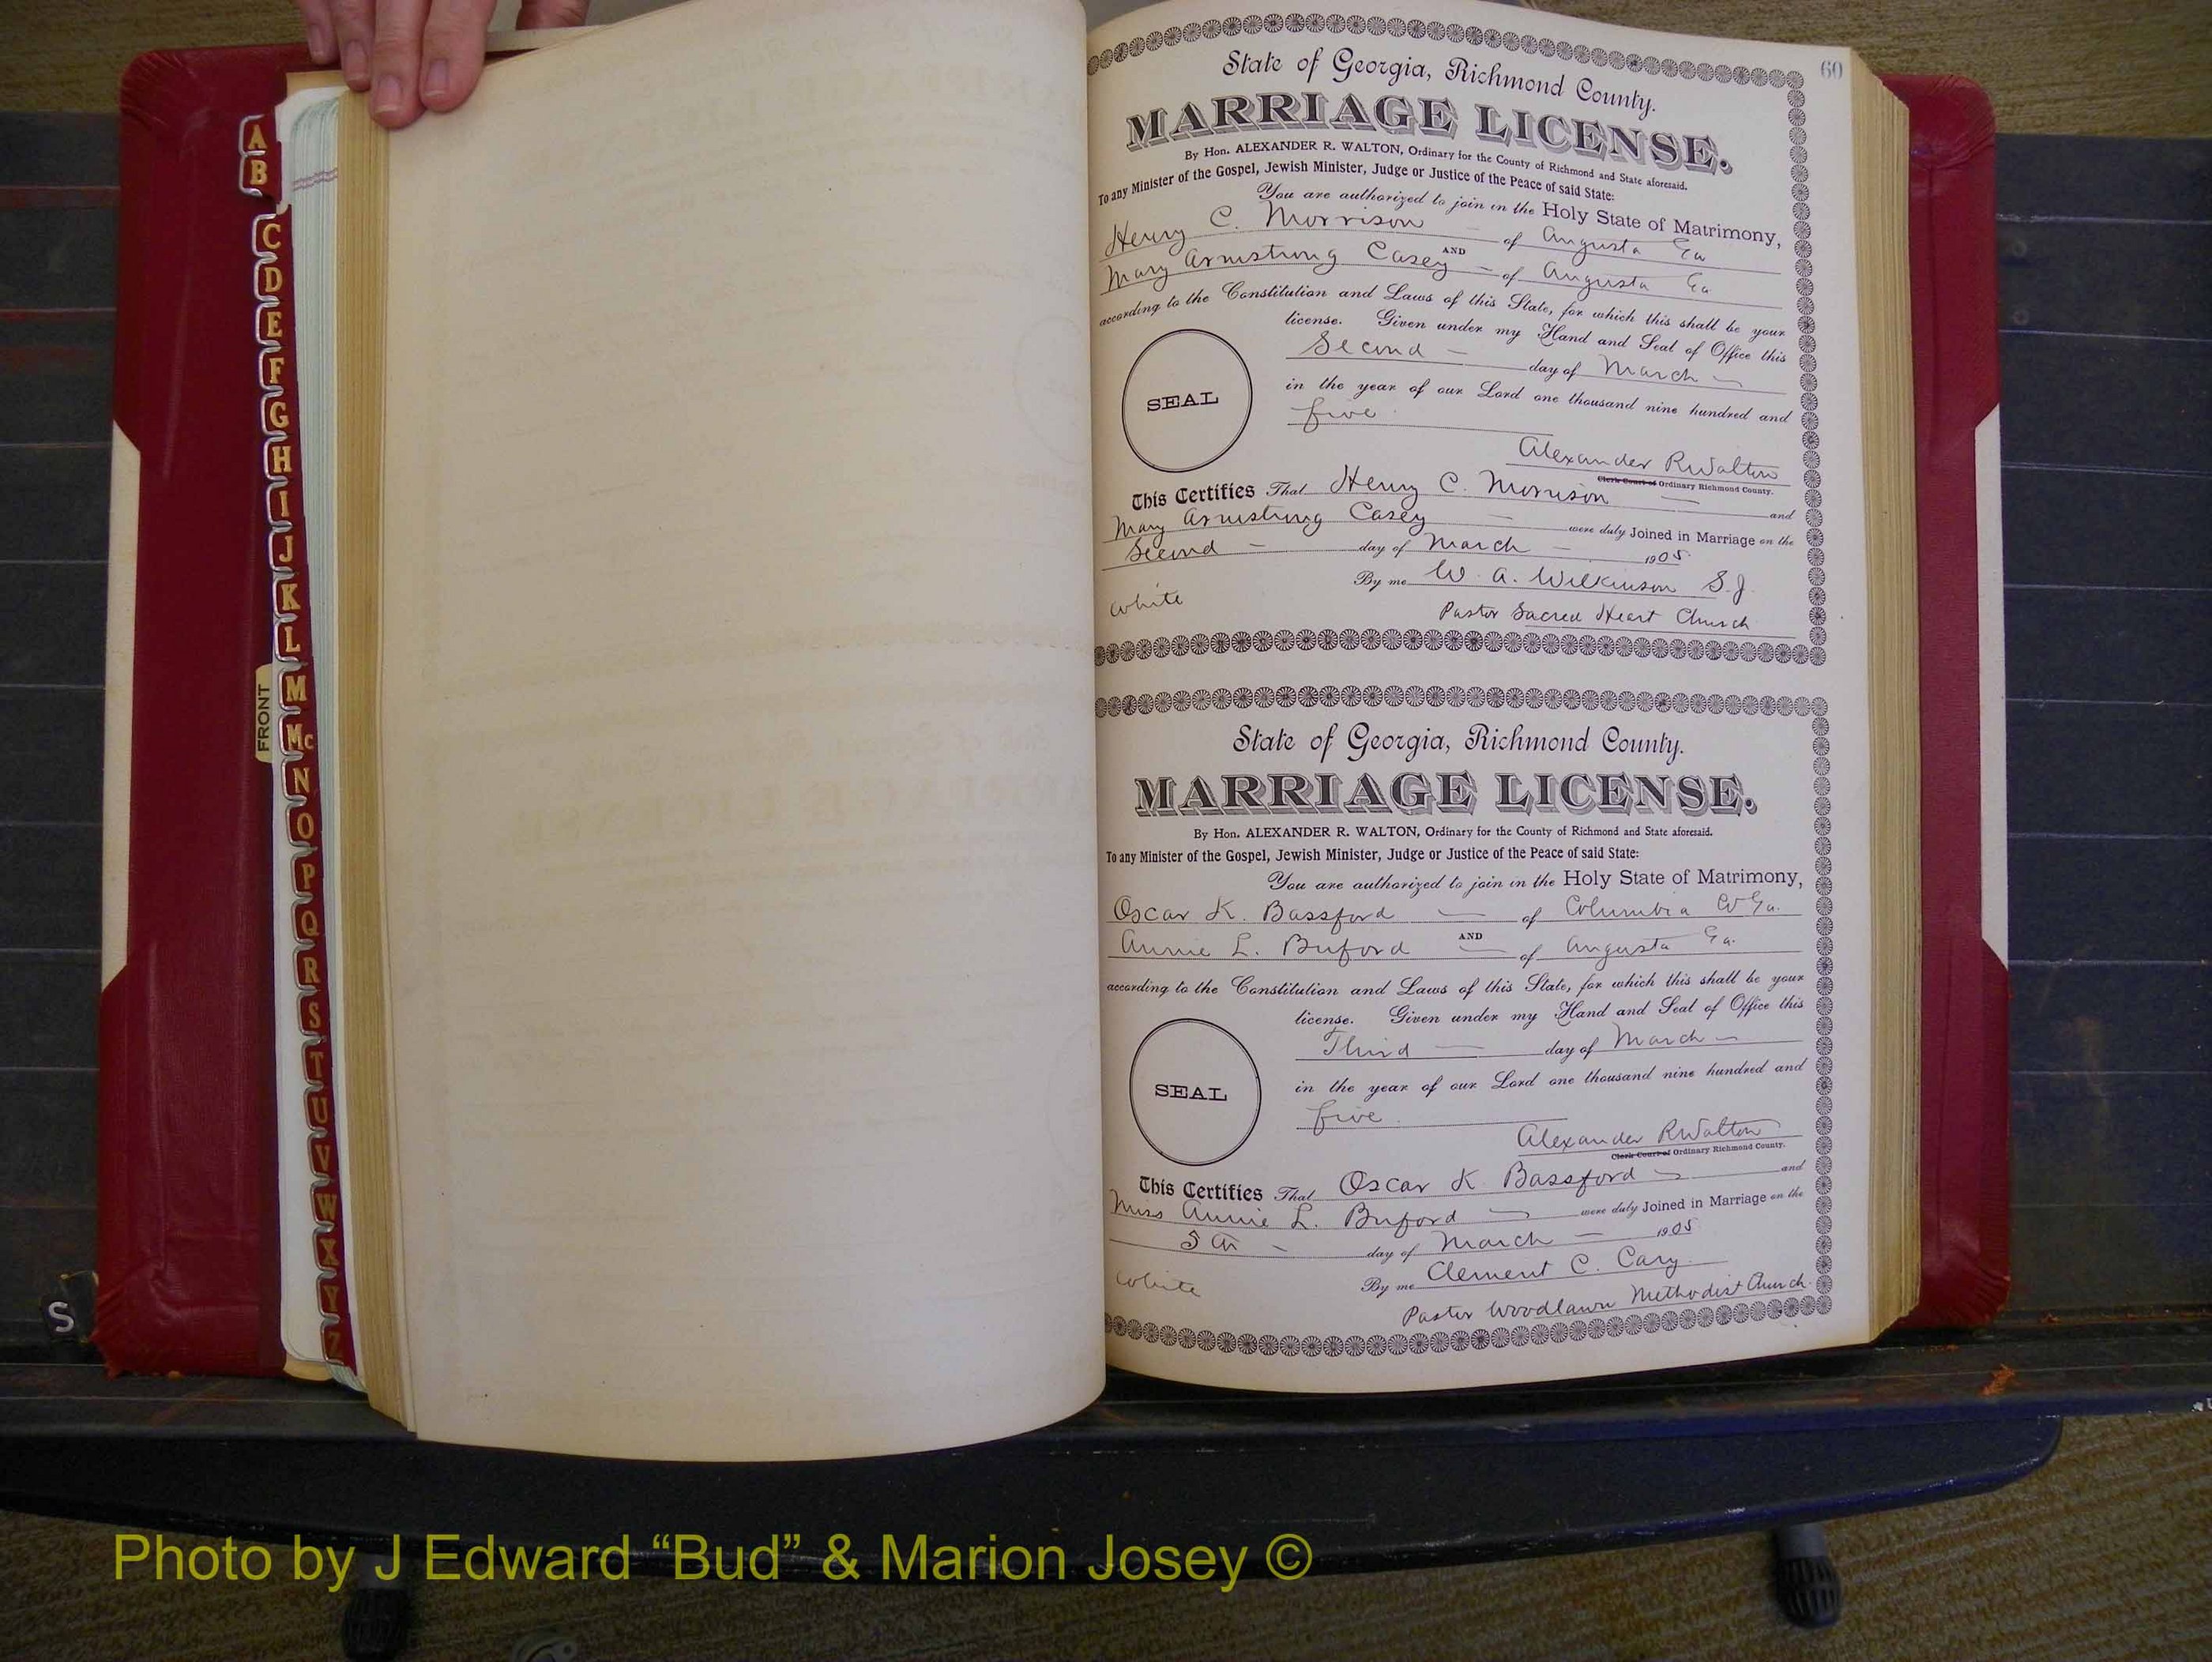 A
B
C
D
E
F
G
H
I
J
K
L
M
Mc
N
O
P
Q
R
S
T
U
V
W
X
Y
Z
FRONT
S
60
State of Georgia, Richmond County.
MARRIAGE LICENSE.
By Hon. ALEXANDER R. WALTON, Ordinary for the County of Richmond and State aforesaid.
To any Minister of the Gospel, Jewish Minister, Judge or Justice of the Peace of said State:
You are authorized to join in the Holy State of Matrimony,
Henry C. Morrison — of Augusta Ga
AND
Mary Armstrong Casey — of Augusta Ga
according to the Constitution and Laws of this State, for which this shall be your
license. Given under my Hand and Seal of Office this
Second — day of March —
in the year of our Lord one thousand nine hundred and
five.
SEAL
Alexander R Walton
Clerk Court of Ordinary Richmond County.
This Certifies That Henry C. Morrison — and
Mary Armstrong Casey — were duly Joined in Marriage on the
Second — day of March — 1905.
By me W. A. Wilkinson S.J.
white
Pastor Sacred Heart Church
State of Georgia, Richmond County.
MARRIAGE LICENSE.
By Hon. ALEXANDER R. WALTON, Ordinary for the County of Richmond and State aforesaid.
To any Minister of the Gospel, Jewish Minister, Judge or Justice of the Peace of said State:
You are authorized to join in the Holy State of Matrimony,
Oscar K. Bassford — of Columbia Co Ga.
AND
Annie L. Buford — of Augusta Ga.
according to the Constitution and Laws of this State, for which this shall be your
license. Given under my Hand and Seal of Office this
Third — day of March —
in the year of our Lord one thousand nine hundred and
five.
SEAL
Alexander R Walton
Clerk Court of Ordinary Richmond County.
This Certifies That Oscar K Bassford — and
Miss Annie L. Buford — were duly Joined in Marriage on the
5th — day of March — 1905
By me Clement C. Cary.
White
Pastor Woodlawn Methodist Church.
Photo by J Edward “Bud” & Marion Josey ©